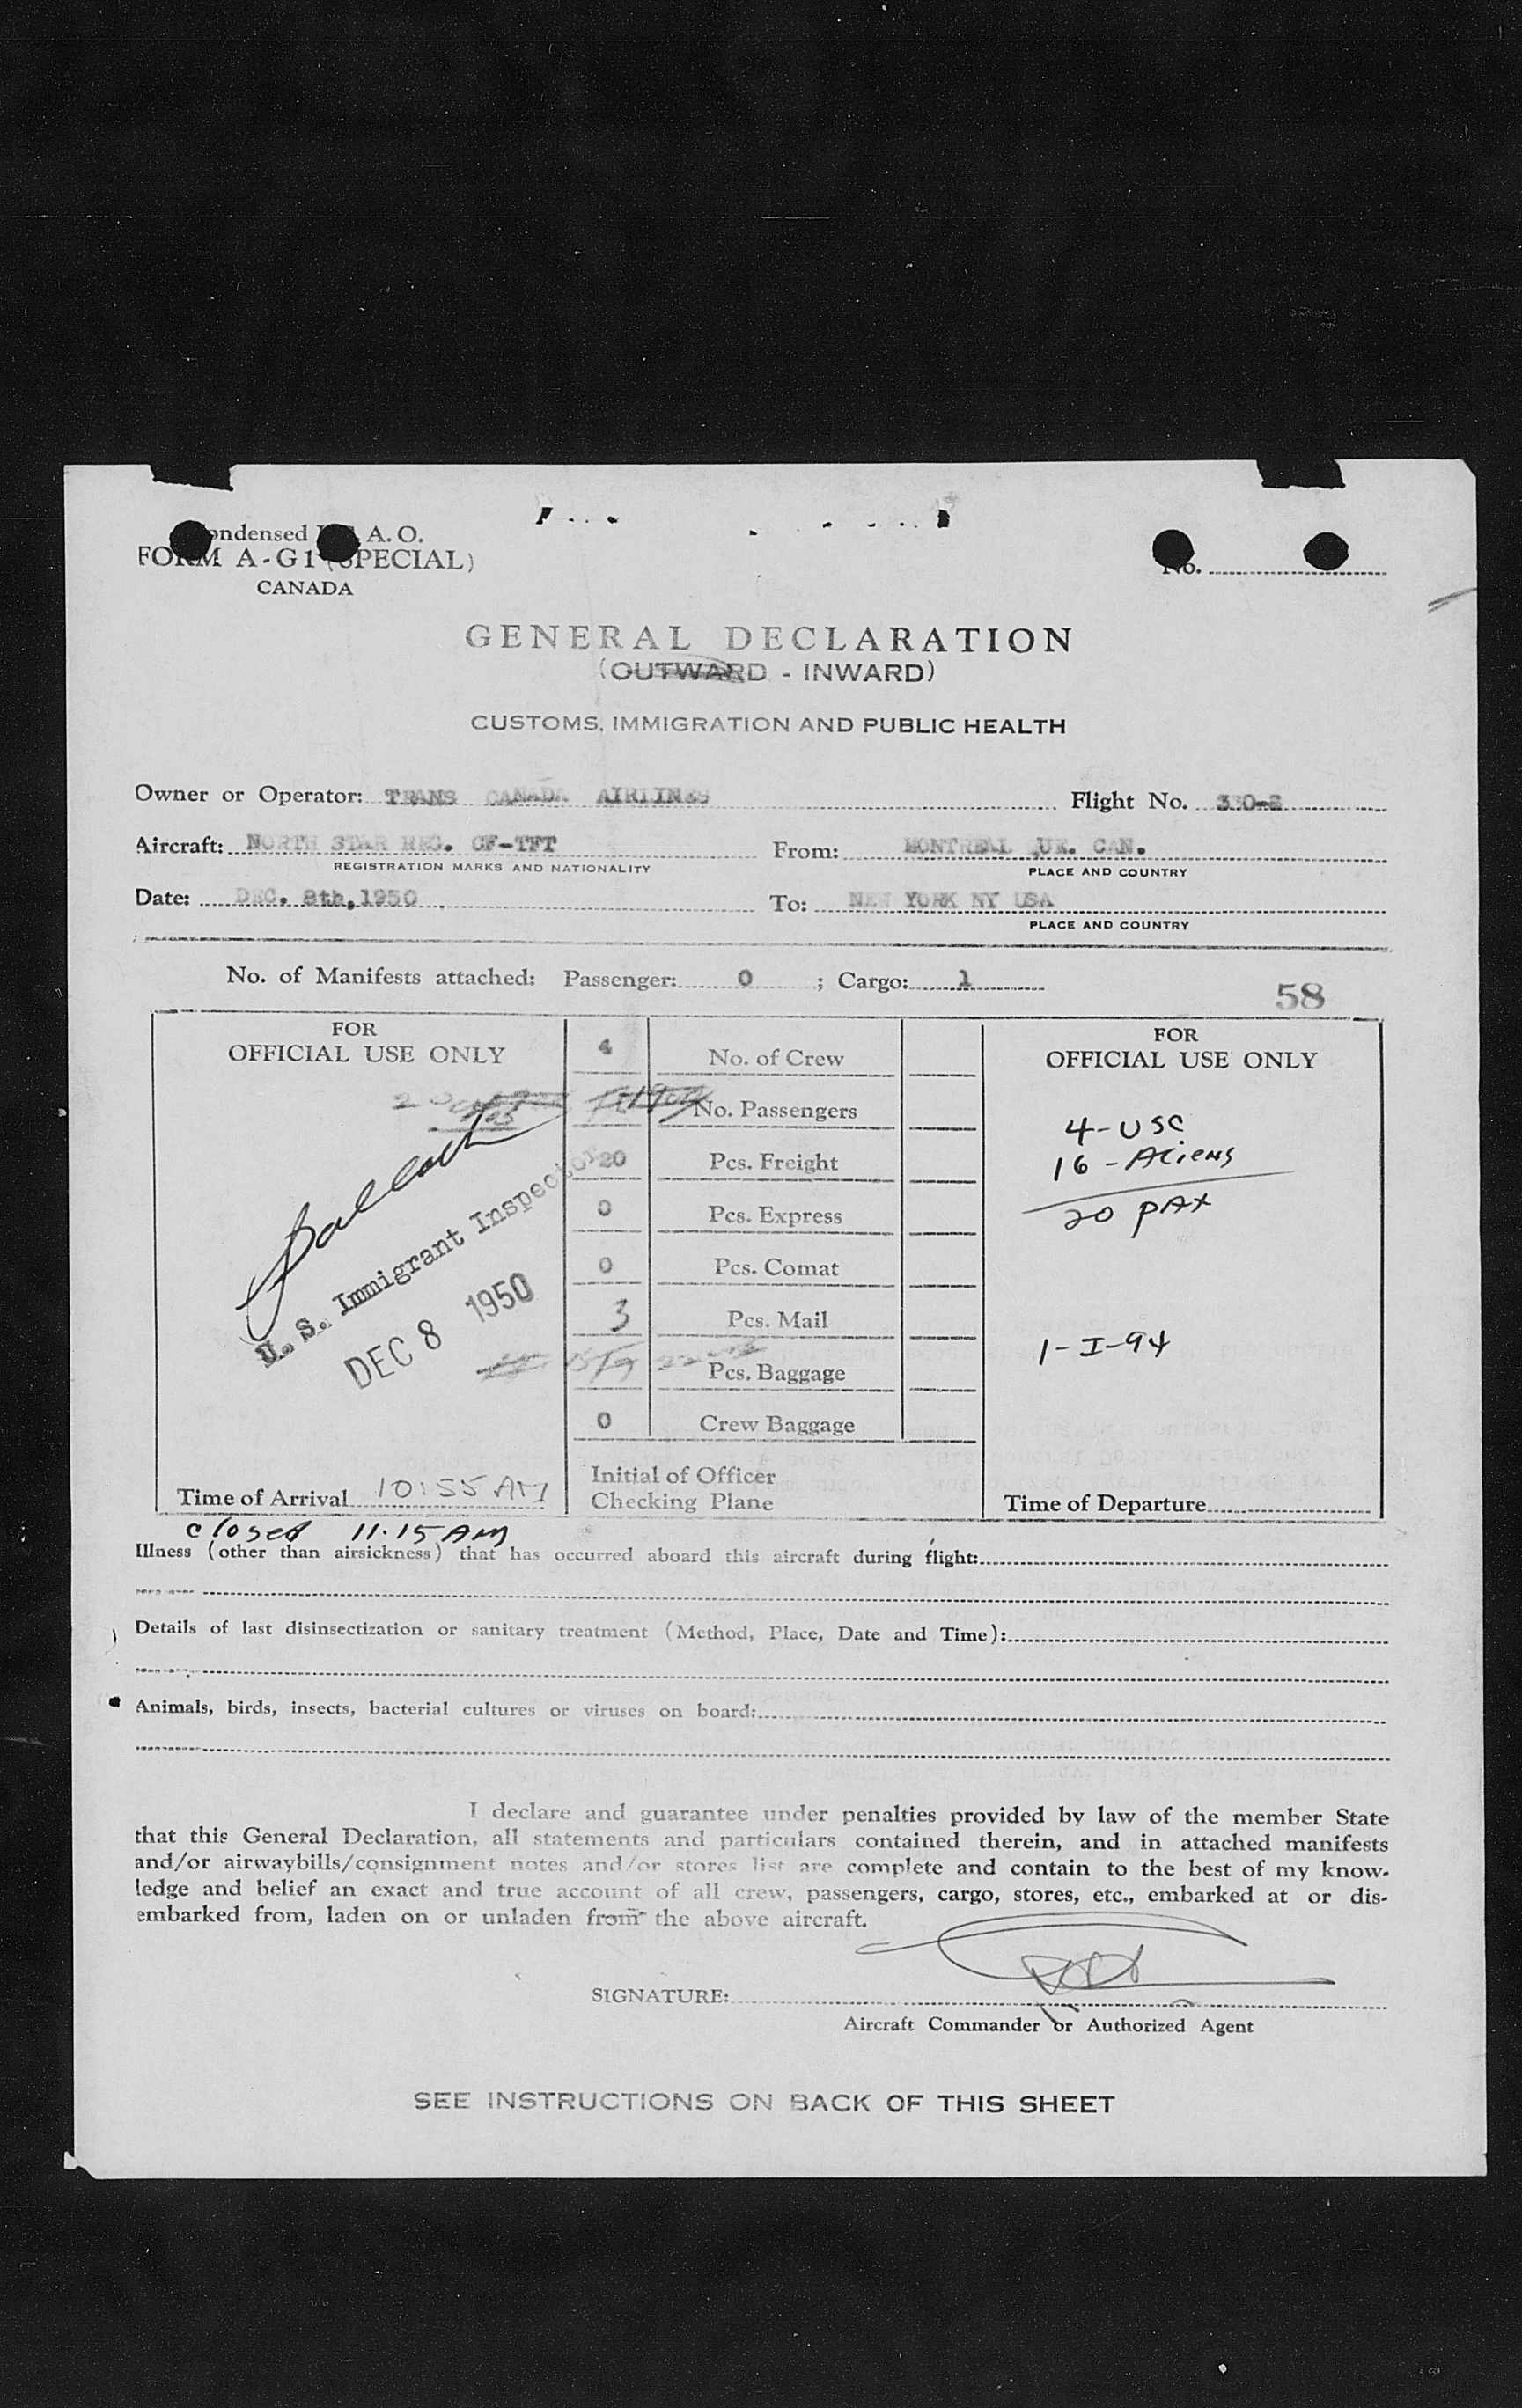 Condensed A. O.
FORM A-G1 (SPECIAL)
CANADA
No.
GENERAL DECLARATION
(OUTWARD - INWARD)
CUSTOMS, IMMIGRATION AND PUBLIC HEALTH
Owner or Operator: TRANS CANADA AIRLINES Flight No.
Aircraft: NORTH STAR REG. CF-TFT From: MONTREAL CAN.
REGISTRATION MARKS AND NATIONALITY PLACE AND COUNTRY
Date: DEC. 8th, 1950 To: NEW YORK NY USA
PLACE AND COUNTRY
No. of Manifests attached: Passenger: 0 ; Cargo: 1
58
FOR
OFFICIAL USE ONLY
4 No. of Crew
No. Passengers
20 Pcs. Freight
0 Pcs. Express
0 Pcs. Comat
3 Pcs. Mail
Pcs. Baggage
0 Crew Baggage
Initial of Officer
Checking Plane
U. S. Immigrant Inspector
DEC 8 1950
Time of Arrival 10:55 AM
closed 11.15 AM
FOR
OFFICIAL USE ONLY
4-USC
16-Aliens
20 PAX
1-I-94
Time of Departure
Illness (other than airsickness) that has occurred aboard this aircraft during flight:
Details of last disinsectization or sanitary treatment (Method, Place, Date and Time):
Animals, birds, insects, bacterial cultures or viruses on board:
I declare and guarantee under penalties provided by law of the member State
that this General Declaration, all statements and particulars contained therein, and in attached manifests
and/or airwaybills/consignment notes and/or stores list are complete and contain to the best of my know-
ledge and belief an exact and true account of all crew, passengers, cargo, stores, etc., embarked at or dis-
embarked from, laden on or unladen from the above aircraft.
SIGNATURE:
Aircraft Commander or Authorized Agent
SEE INSTRUCTIONS ON BACK OF THIS SHEET